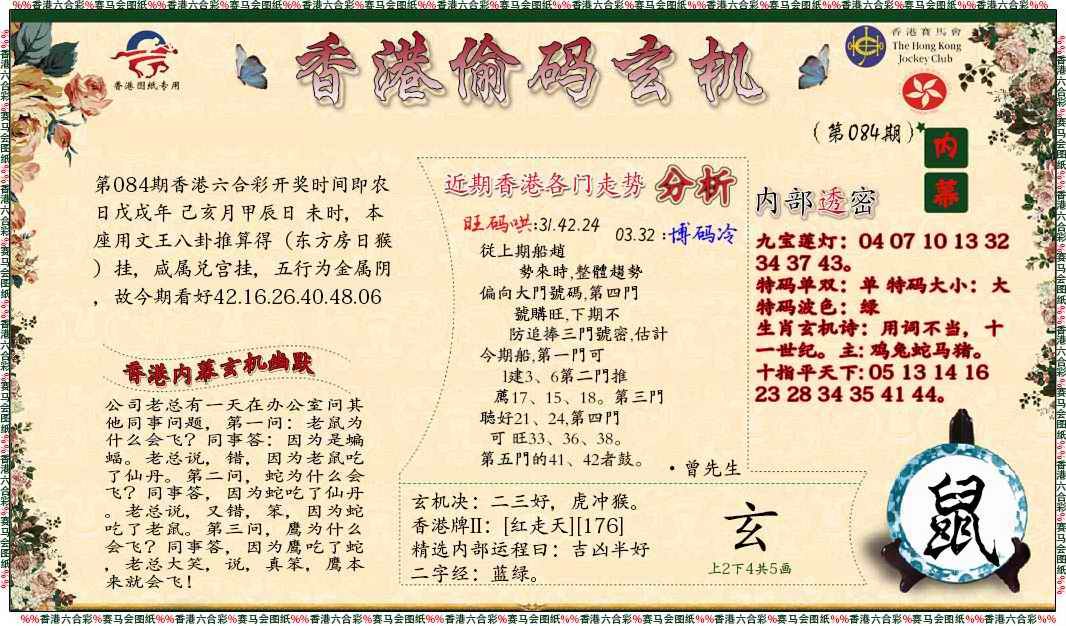 %%香港六合彩%赛马会图纸%%香港六合彩%赛马会图纸%%香港六合彩%赛马会图纸%%香港六合彩%赛马会图纸%%香港六合彩%赛马会图纸%%香港六合彩%赛马会图纸%%香港六合彩%%
香港图纸专用
香港偷码玄机
香港賽馬會
The Hong Kong
Jockey Club
(第084期)
内幕
第084期香港六合彩开奖时间即农
日戊戌年 己亥月甲辰日 未时，本
座用文王八卦推算得（东方房日猴
）挂，咸属兑宫挂，五行为金属阴
，故今期看好42.16.26.40.48.06
香港内幕玄机幽默
公司老总有一天在办公室问其
他同事问题，第一问：老鼠为
什么会飞？同事答：因为是蝙
蝠。老总说，错，因为老鼠吃
了仙丹。第二问，蛇为什么会
飞？同事答，因为蛇吃了仙丹
。老总说，又错，笨，因为蛇
吃了老鼠。第三问，鹰为什么
会飞？同事答，因为鹰吃了蛇
，老总大笑，说，真笨，鹰本
来就会飞！
近期香港各门走势 分析
旺码哄:31.42.24
03.32 :博码冷
從上期船趙
勢來時,整體趨勢
偏向大門號碼,第四門
號購旺,下期不
防追捧三門號密,估計
今期船,第一門可
1建3、6第二門推
薦17、15、18。第三門
聴好21、24,第四門
可 旺33、36、38。
第五門的41、42者鼓。
·曾先生
玄机决：二三好，虎冲猴。
香港牌II：[红走天][176]
精选内部运程曰：吉凶半好
二字经：蓝绿。
玄
上2下4共5画
内部透密
九宝莲灯：04 07 10 13 32
34 37 43。
特码单双：单 特码大小：大
特码波色：绿
生肖玄机诗：用词不当，十
一世纪。主: 鸡兔蛇马猪。
十指平天下: 05 13 14 16
23 28 34 35 41 44。
鼠
%%香港六合彩%赛马会图纸%%香港六合彩%赛马会图纸%%香港六合彩%赛马会图纸%%香港六合彩%赛马会图纸%%香港六合彩%赛马会图纸%%香港六合彩%赛马会图纸%%香港六合彩%%